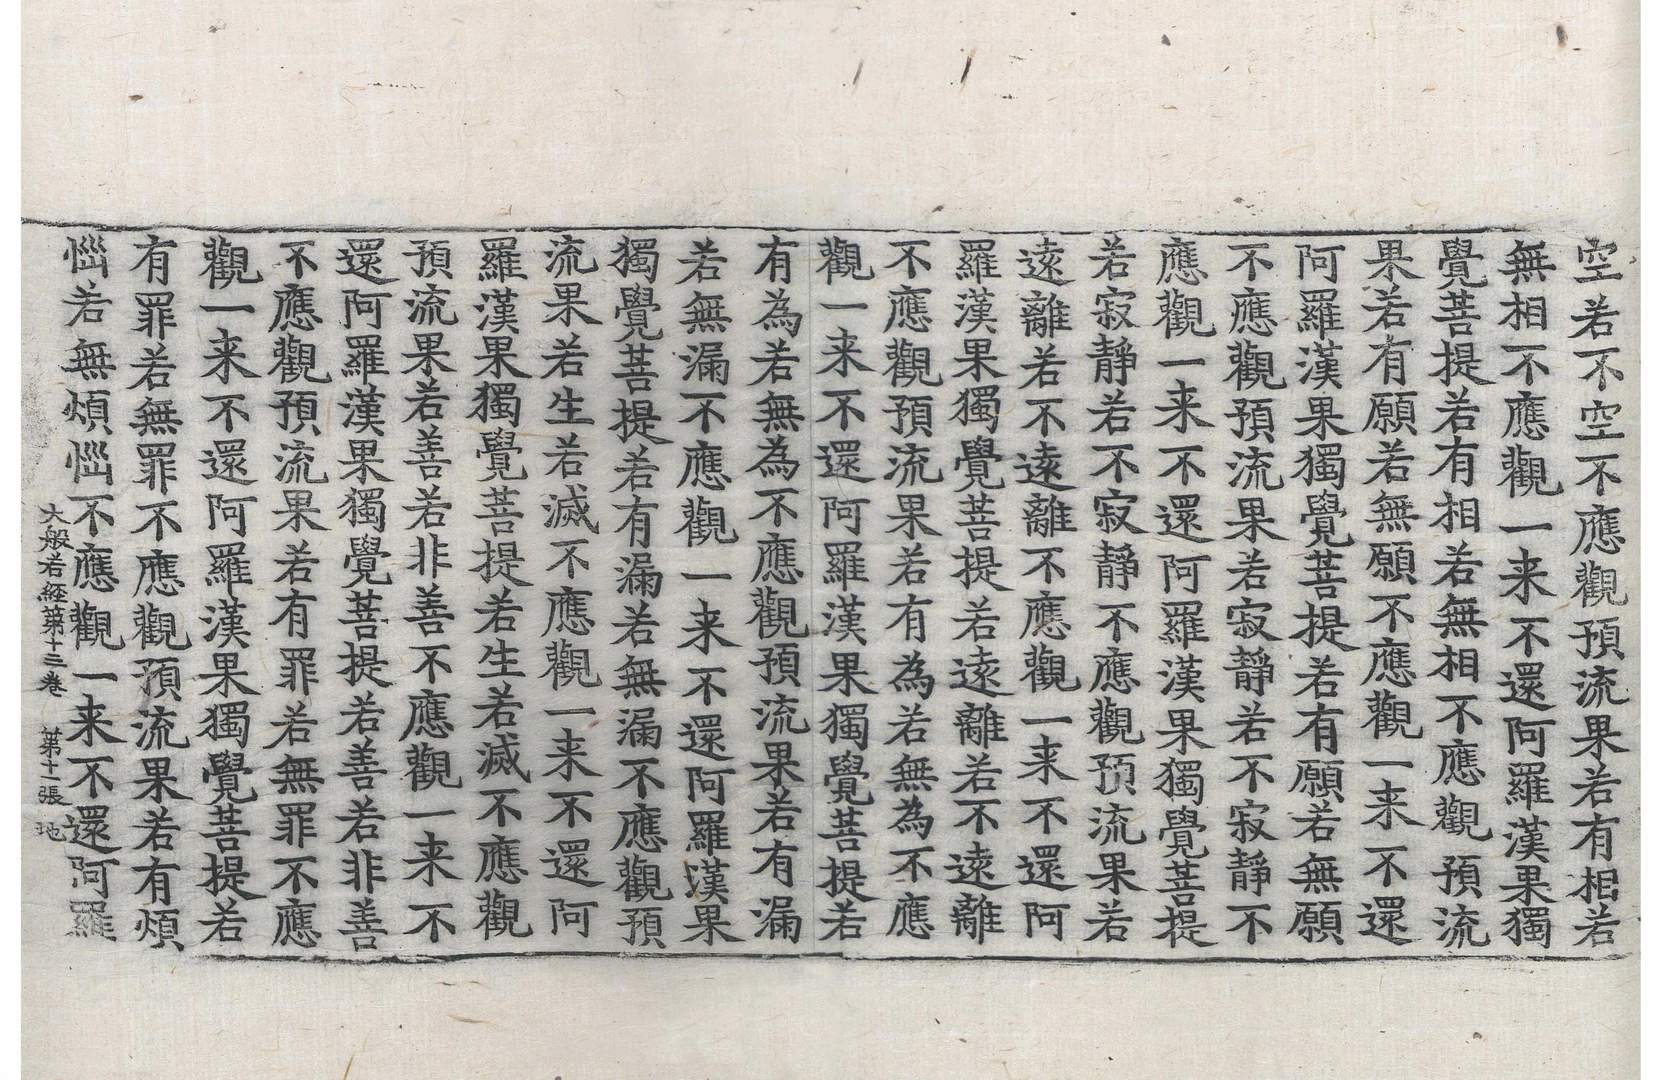 空若不空不應觀預流果若有相若
無相不應觀一来不還阿羅漢果獨
覺菩提若有相若無相不應觀預流
果若有願若無願不應觀一来不還
阿羅漢果獨覺菩提若有願若無願
不應觀預流果若寂靜若不寂靜不
應觀一来不還阿羅漢果獨覺菩提
若寂靜若不寂靜不應觀預流果若
遠離若不遠離不應觀一来不還阿
羅漢果獨覺菩提若遠離若不遠離
不應觀預流果若有為若無為不應
觀一来不還阿羅漢果獨覺菩提若
有為若無為不應觀預流果若有漏
若無漏不應觀一来不還阿羅漢果
獨覺菩提若有漏若無漏不應觀預
流果若生若滅不應觀一来不還阿
羅漢果獨覺菩提若生若滅不應觀
預流果若善若非善不應觀一来不
還阿羅漢果獨覺菩提若善若非善
不應觀預流果若有罪若無罪不應
觀一来不還阿羅漢果獨覺菩提若
有罪若無罪不應觀預流果若有煩
惱若無煩惱不應觀一来不還阿羅
大般若經第十三卷 第十一張 地